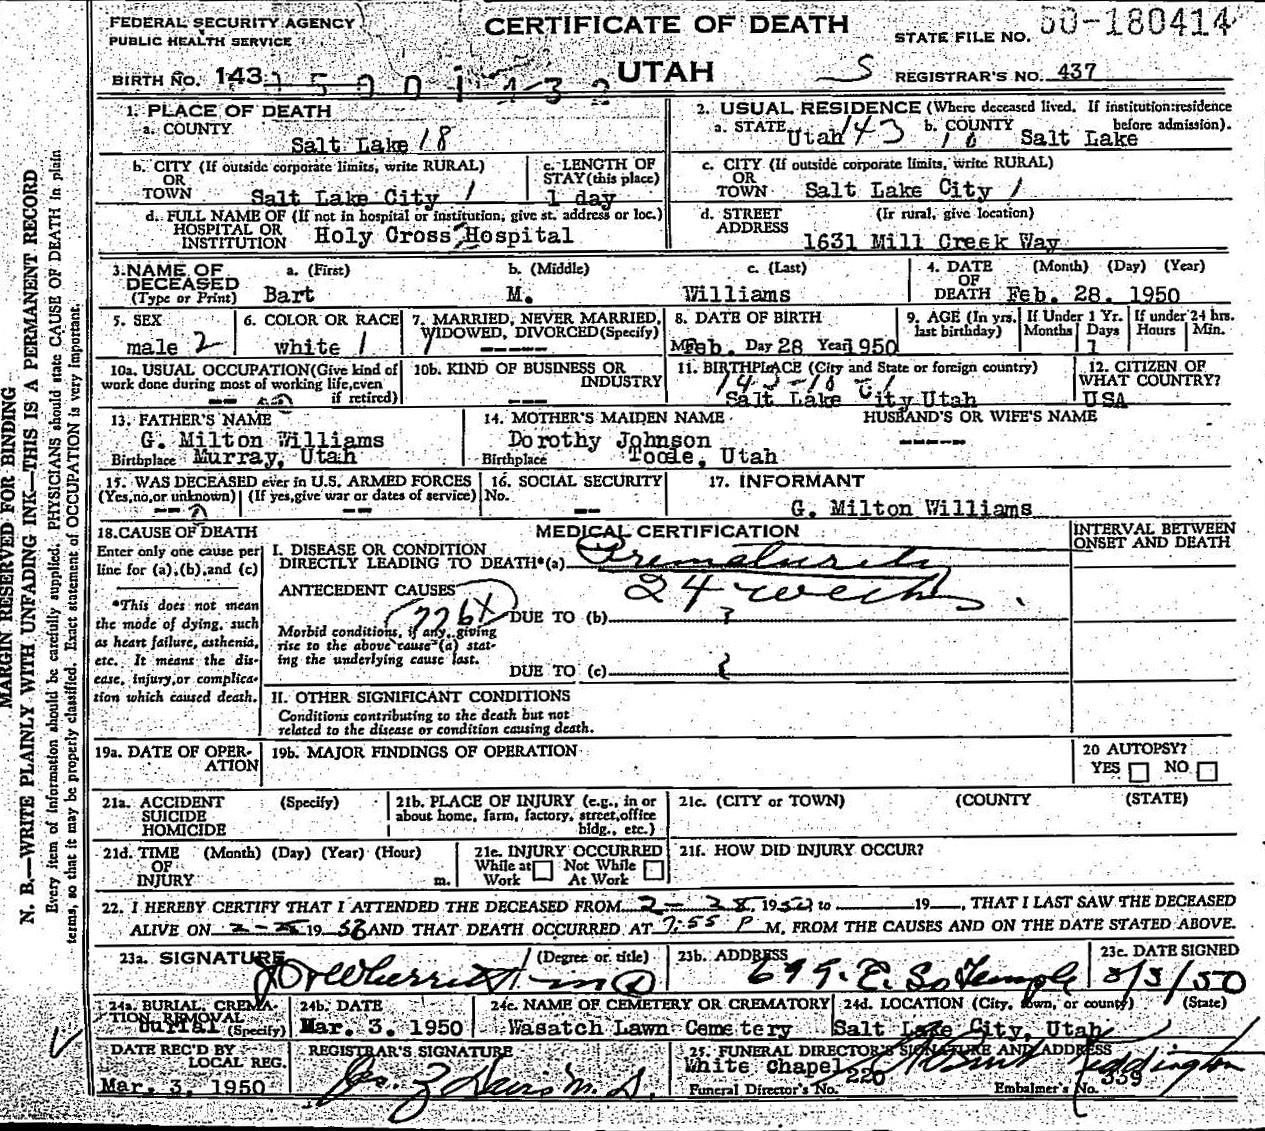 FEDERAL SECURITY AGENCY
PUBLIC HEALTH SERVICE
CERTIFICATE OF DEATH
STATE FILE NO. 50-180414
BIRTH NO. 143
UTAH
REGISTRAR'S NO. 437
1. PLACE OF DEATH
a. COUNTY
Salt Lake 18
2. USUAL RESIDENCE (Where deceased lived. If institution:residence before admission).
a. STATE Utah 143 b. COUNTY Salt Lake
b. CITY (If outside corporate limits, write RURAL)
OR
TOWN Salt Lake City 1
c. LENGTH OF
STAY(this place)
1 day
c. CITY (If outside corporate limits, write RURAL)
OR
TOWN Salt Lake City 1
d. FULL NAME OF (If not in hospital or institution, give st. address or loc.)
HOSPITAL OR
INSTITUTION Holy Cross Hospital
d. STREET (Ir rural, give location)
ADDRESS
1631 Mill Creek Way
3. NAME OF
DECEASED
(Type or Print)
a. (First) b. (Middle) c. (Last)
Bart M. Williams
4. DATE (Month) (Day) (Year)
OF
DEATH Feb. 28. 1950
5. SEX
male 2
6. COLOR OR RACE
white 1
7. MARRIED, NEVER MARRIED,
WIDOWED, DIVORCED(Specify)
1 -----
8. DATE OF BIRTH
Feb. Day 28 Year 1950
9. AGE (In yrs. last birthday) If Under 1 Yr. Months Days If under 24 hrs. Hours Min.
1
10a. USUAL OCCUPATION(Give kind of
work done during most of working life,even
if retired)
--
10b. KIND OF BUSINESS OR
INDUSTRY
---
11. BIRTHPLACE (City and State or foreign country)
Salt Lake City Utah
12. CITIZEN OF
WHAT COUNTRY?
USA
13. FATHER'S NAME
G. Milton Williams
Birthplace Murray, Utah
14. MOTHER'S MAIDEN NAME
Dorothy Johnson
Birthplace Toole, Utah
HUSBAND'S OR WIFE'S NAME
-----
15. WAS DECEASED ever in U.S. ARMED FORCES
(Yes,no,or unknown) (If yes,give war or dates of service)
-- --
16. SOCIAL SECURITY
No.
--
17. INFORMANT
G. Milton Williams
18. CAUSE OF DEATH
Enter only one cause per
line for (a),(b),and (c)
*This does not mean
the mode of dying, such
as heart failure, asthenia,
etc. It means the dis-
ease, injury,or complica-
tion which caused death.
MEDICAL CERTIFICATION
INTERVAL BETWEEN
ONSET AND DEATH
I. DISEASE OR CONDITION
DIRECTLY LEADING TO DEATH*(a) Prematurity
24 weeks.
ANTECEDENT CAUSES
776X
DUE TO (b)
Morbid conditions, if any, giving
rise to the above cause (a) stat-
ing the underlying cause last.
DUE TO (c)
II. OTHER SIGNIFICANT CONDITIONS
Conditions contributing to the death but not
related to the disease or condition causing death.
19a. DATE OF OPER-
ATION
19b. MAJOR FINDINGS OF OPERATION
20 AUTOPSY?
YES NO
21a. ACCIDENT (Specify)
SUICIDE
HOMICIDE
21b. PLACE OF INJURY (e.g., in or
about home, farm, factory, street,office
bldg., etc.)
21c. (CITY or TOWN) (COUNTY (STATE)
21d. TIME (Month) (Day) (Year) (Hour)
OF
INJURY m.
21e. INJURY OCCURRED
While at Not While
Work At Work
21f. HOW DID INJURY OCCUR?
22. I HEREBY CERTIFY THAT I ATTENDED THE DECEASED FROM 2-28 1950 to 19 , THAT I LAST SAW THE DECEASED
ALIVE ON 2-28 19 50 AND THAT DEATH OCCURRED AT 7:55 P M, FROM THE CAUSES AND ON THE DATE STATED ABOVE.
23a. SIGNATURE (Degree or title)
23b. ADDRESS
699 E. So Temple
23c. DATE SIGNED
3/3/50
24a. BURIAL, CREMA-
TION REMOVAL
Burial (Specify)
24b. DATE
Mar. 3. 1950
24c. NAME OF CEMETERY OR CREMATORY
Wasatch Lawn Cemetery
24d. LOCATION (City, town, or county) (State)
Salt Lake City, Utah
DATE REC'D BY
LOCAL REG.
Mar. 3, 1950
REGISTRAR'S SIGNATURE
25. FUNERAL DIRECTOR'S SIGNATURE AND ADDRESS
White Chapel
Funeral Director's No. 220 Embalmer's No. 339
MARGIN RESERVED FOR BINDING
N. B.—WRITE PLAINLY WITH UNFADING INK—THIS IS A PERMANENT RECORD
Every item of information should be carefully supplied. PHYSICIANS should state CAUSE OF DEATH in plain
terms, so that it may be properly classified. Exact statement of OCCUPATION is very important.